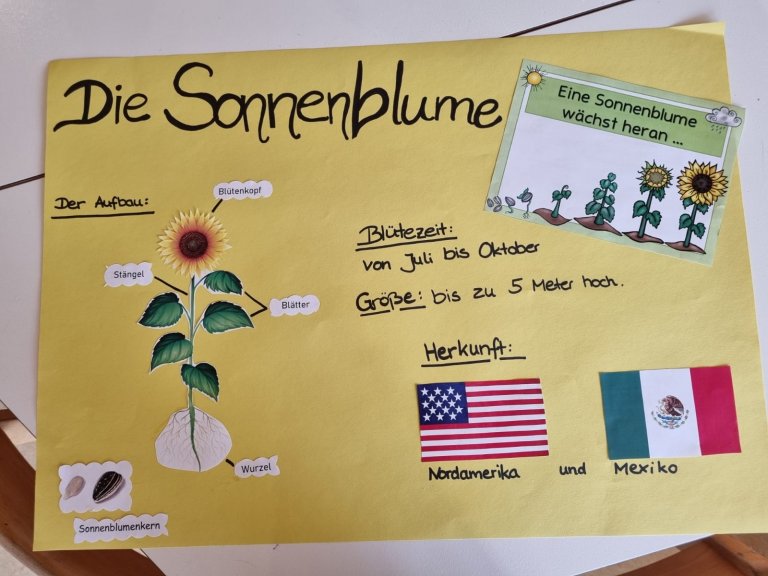 Die Sonnenblume
Eine Sonnenblume
wächst heran ...
Der Aufbau:
Blütenkopf
Stängel
Blätter
Wurzel
Sonnenblumenkern
Blütezeit:
von Juli bis Oktober
Größe: bis zu 5 Meter hoch.
Herkunft:
Nordamerika und Mexiko